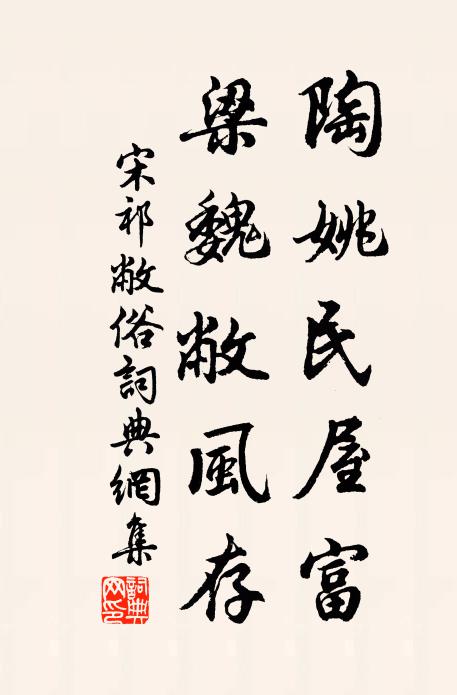 陶姚民屋富
梁魏敝風存
宋祁敝俗詞典網集
詞典網印